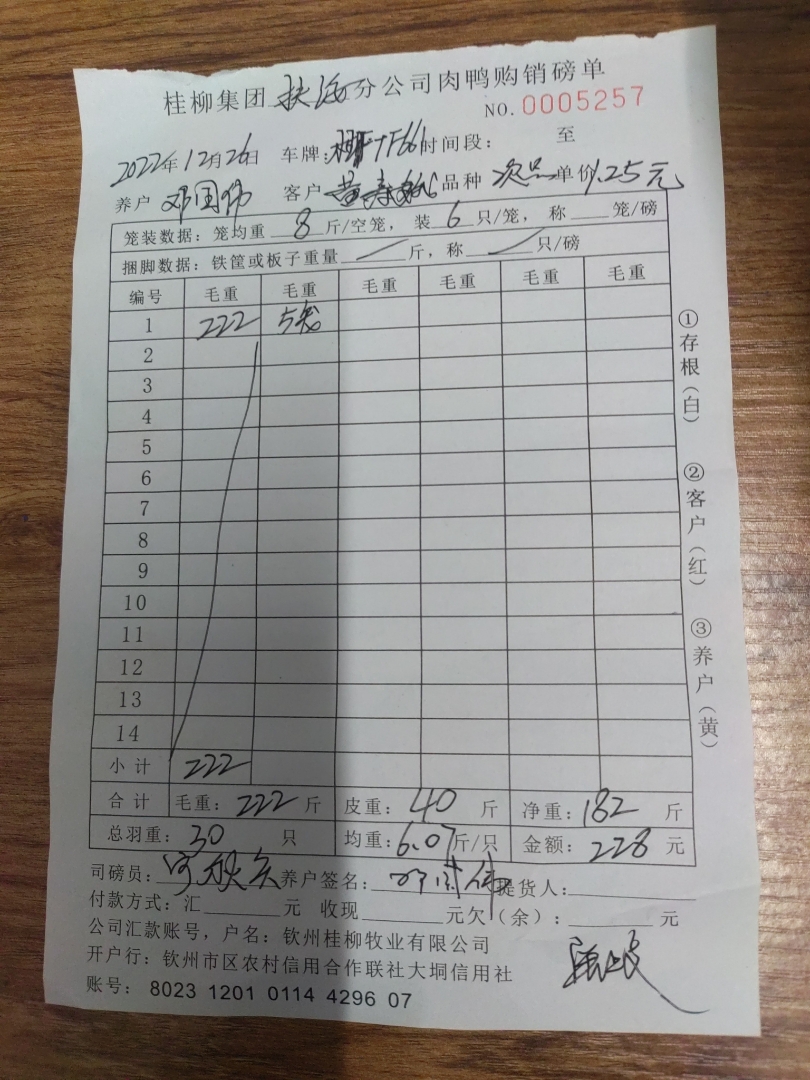 桂柳集团 扶海 分公司肉鸭购销磅单
NO.0005257
2022年12月26日 车牌: 时间段: 至
养户 邓国伟 客户 品种 次品 单价 1.25元
笼装数据: 笼均重 8 斤/空笼, 装 6 只/笼, 称 笼/磅
捆脚数据: 铁筐或板子重量 / 斤, 称 / 只/磅
编号 毛重 毛重 毛重 毛重 毛重 毛重
1 222 5笼
2
3
4
5
6
7
8
9
10
11
12
13
14
小计 222
合计 毛重: 222 斤 皮重: 40 斤 净重: 182 斤
总羽重: 30 只 均重: 6.07 斤/只 金额: 228 元
司磅员: 养户签名: 邓国伟 提货人:
付款方式: 汇 元 收现 元欠(余): 元
公司汇款账号, 户名: 钦州桂柳牧业有限公司
开户行: 钦州市区农村信用合作联社大垌信用社
账号: 8023 1201 0114 4296 07
①存根(白)
②客户(红)
③养户(黄)